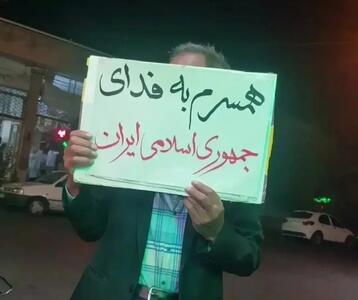 همسرم به فدای
جمهوری اسلامی ایران